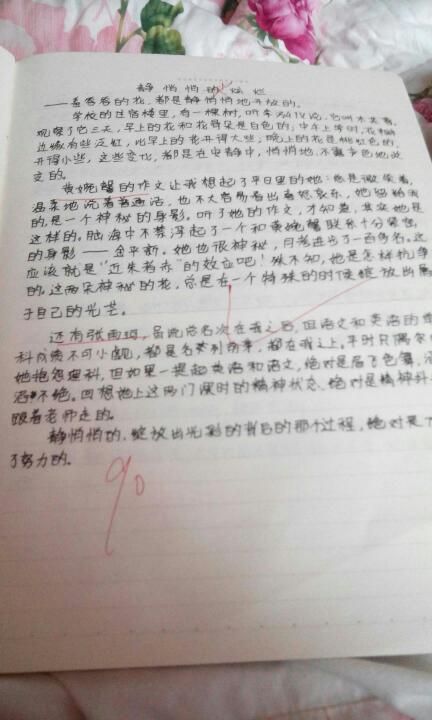 静悄悄的灿烂
——最香香的花,都是静悄悄地开放的。
学校的住宿楼里,有一棵树,听 说,它叫木芙蓉,
观察了它三天,早上的花和花骨朵是白色的;中午上学时,花瓣
边缘有些泛红,比早上的花开得大些;晚上的花是桃红色的,
开得小些,这些变化,都是在安静中,悄悄地,不露声色地改
变的。
黄婉馨的作文让我想起了平日里的她:总是微笑着,
温柔地说着普通话,也不大容易看出喜怒哀乐,她留给我
的,是一个神秘的身影。听了她的作文,才知道,其实她是
这样的。脑海中不禁浮起了一个和黄婉馨联系十分紧密
的身影——金平新。她也很神秘,月考进步了一百多名。这
应该就是“近朱者赤”的效应吧!殊不知,她是怎样抗争
的。这两朵神秘的花,总是在一个特殊的时候绽放出属
于自己的光芒。
还有张雨珂,虽说总名次在我之后,但语文和英语的单
科成绩不可小觑,都是名列前茅,都在我之上。平时只偶尔
她抱怨理科,但如果一提起英语和语文,绝对是眉飞色舞,滔
滔不绝。回想她上这两门课时的精神状态,绝对是精神抖
跟着老师走的。
静悄悄的,绽放出光彩的背后的那个过程,绝对是
了努力的。
90